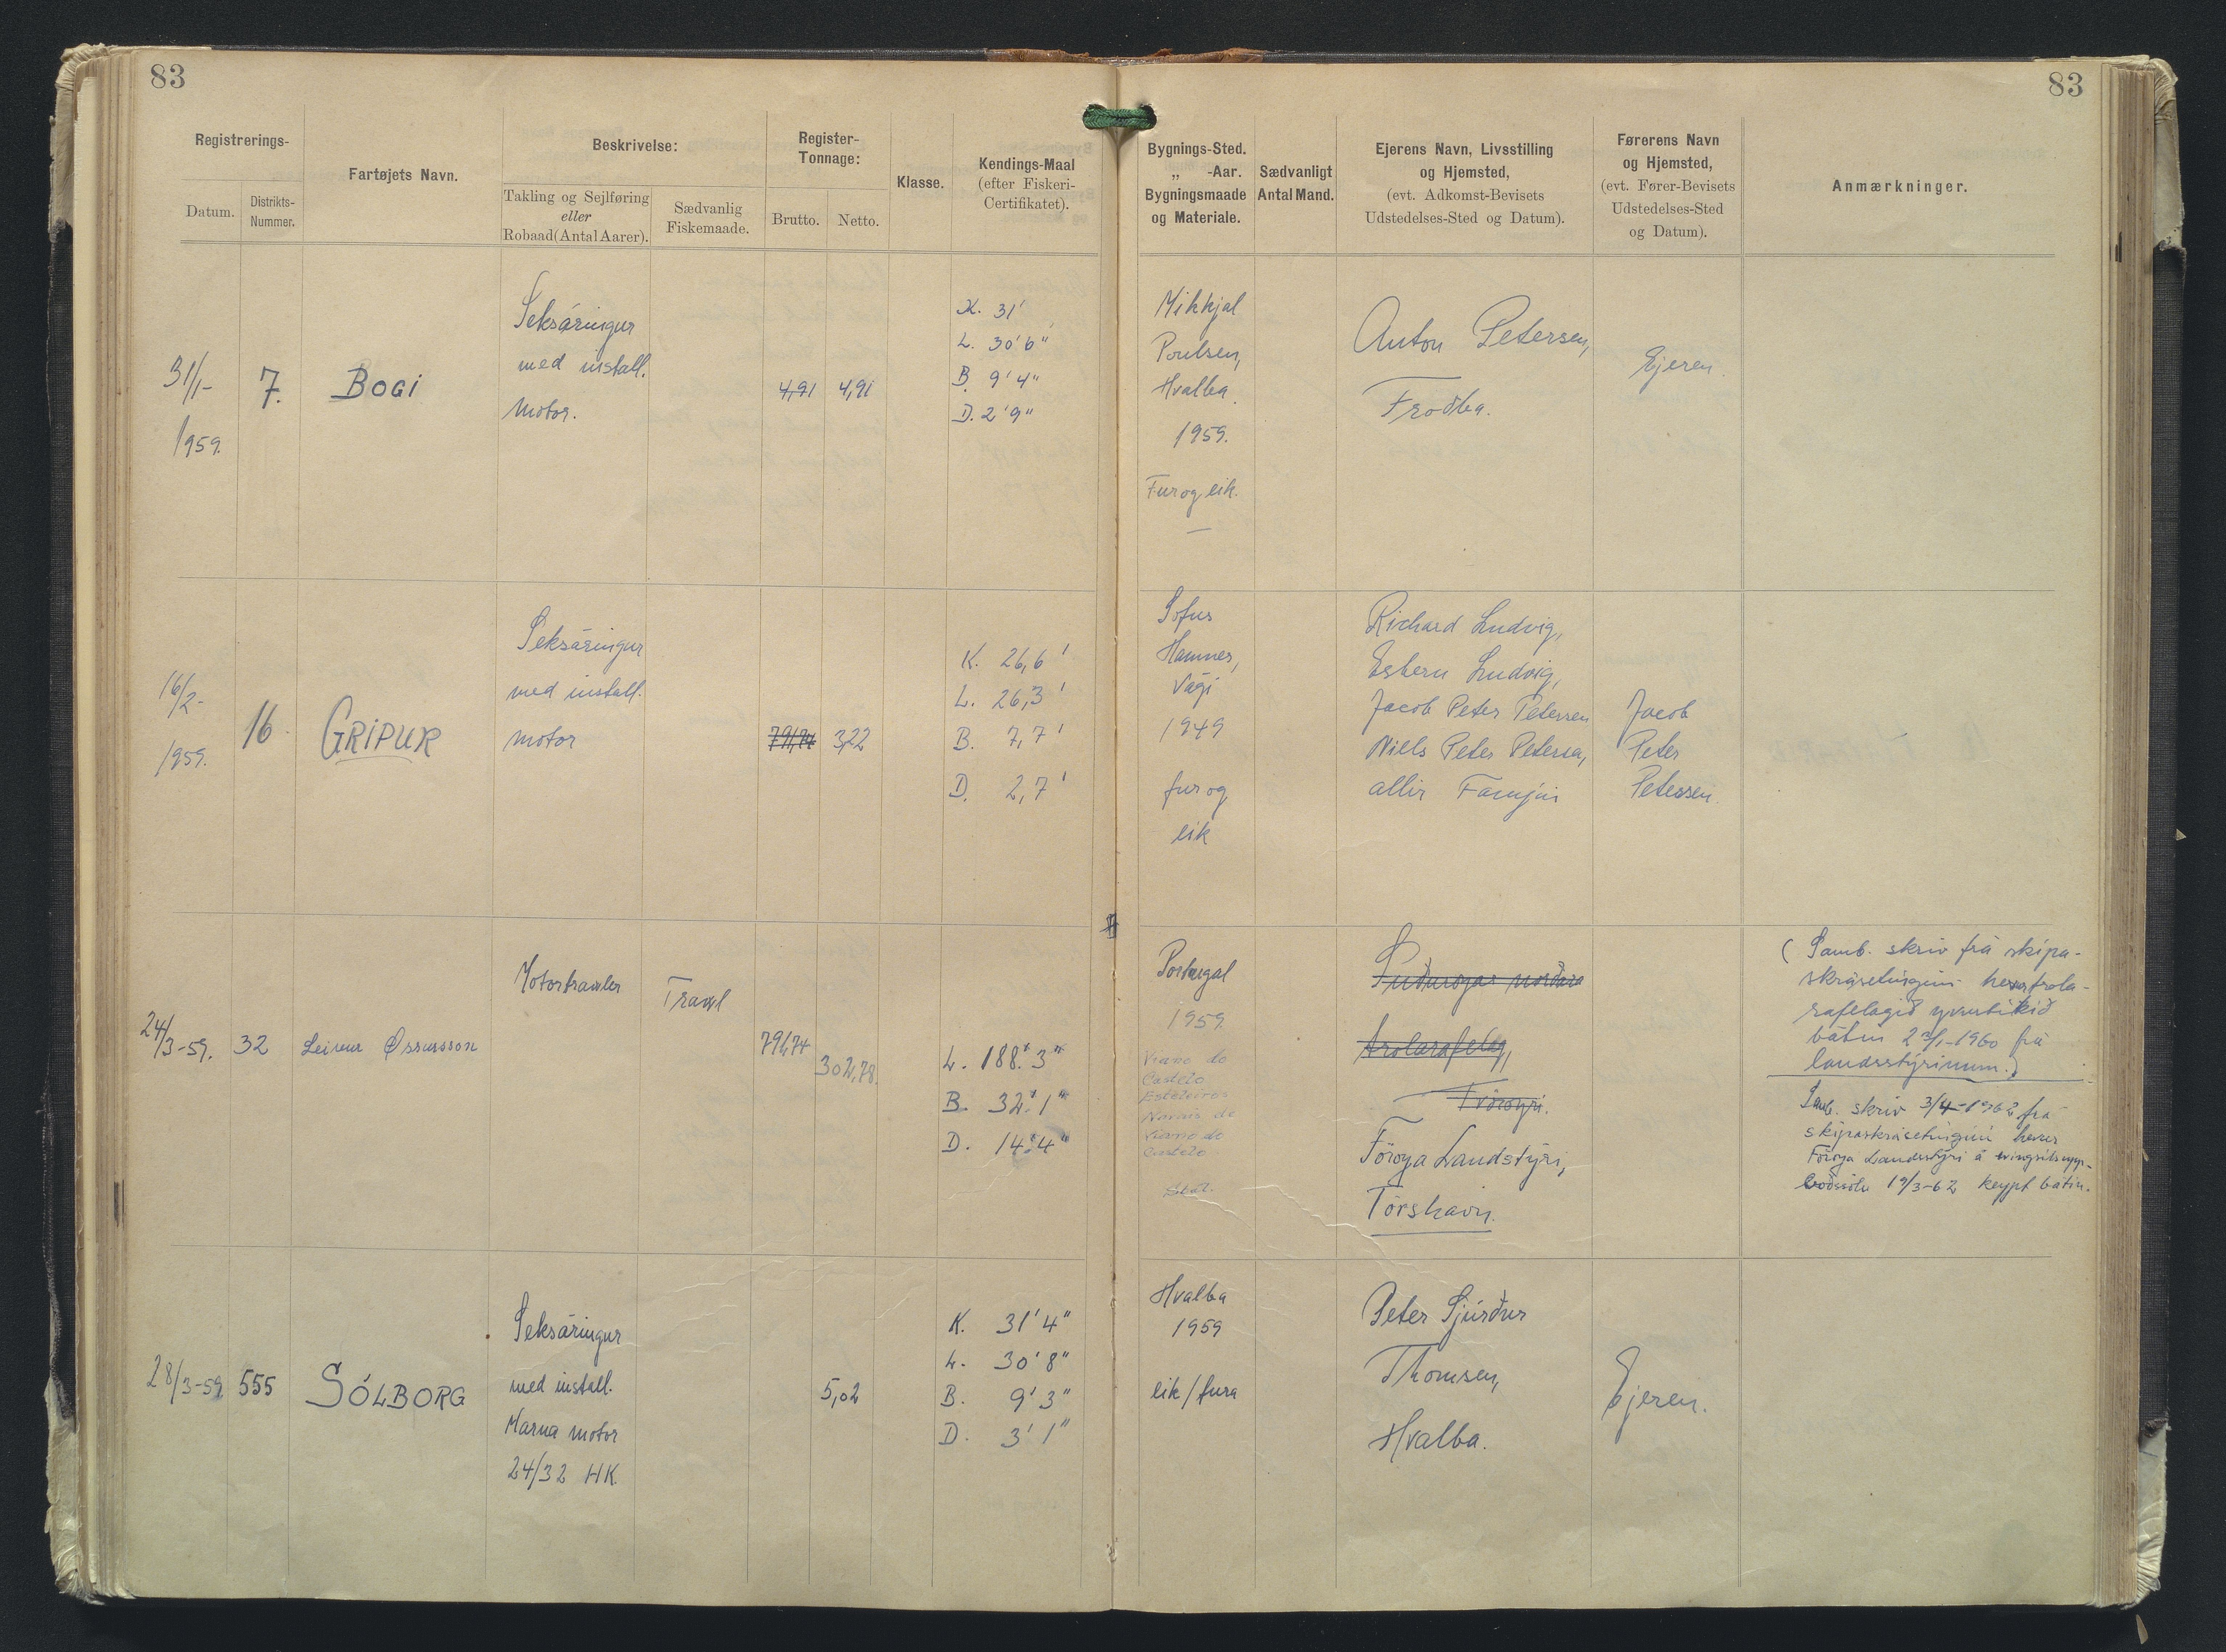 83
83
Registrerings-
Datum.
Distrikts-
Nummer.
Fartøjets Navn.
Beskrivelse:
Takling og Sejlføring
eller
Robaad (Antal Aarer).
Sædvanlig
Fiskemaade.
Register-
Tonnage:
Brutto.
Netto.
Klasse.
Kendings-Maal
(efter Fiskeri-
Certifikatet).
Bygnings-Sted.
„ -Aar.
Bygningsmaade
og Materiale.
Sædvanligt
Antal Mand.
Ejerens Navn, Livsstilling
og Hjemsted,
(evt. Adkomst-Bevisets
Udstedelses-Sted og Datum).
Førerens Navn
og Hjemsted,
(evt. Fører-Bevisets
Udstedelses-Sted
og Datum).
Anmærkninger.
31/1-
1959.
7.
BOGI
Seksáringur
med install.
Motor.
4,91
4,91
K. 31'
L. 30'6"
B. 9'4"
D. 2'9"
Mikkjal
Poulsen,
Hvalba.
1959.
Fur og eik.
Anton Petersen,
Froðba.
Ejeren.
16/2-
1959.
16
GRIPUR
Seksáringur
med install.
motor
791,74
3,22
K. 26,6'
L. 26,3'
B. 7,7'
D. 2,7'
Sofus
Hamner,
Vági
1949
fur og
eik
Richard Ludvig,
Esbern Ludvig,
Jacob Peter Petersen
Niels Peter Petersen,
allir Famjin
Jacob
Peter
Petersen.
24/3-59.
32
Leivur Øssursson
Motortrawler
Trawl
791,74
302,78.
L. 188' 3"
B. 32' 1"
D. 14' 4"
Portugal
1959.
Viano do
Castelo
Estaleiros
Navais de
Viano do
Castelo
Stál.
Suðuroyar norðara
trolarafelag,
Tvöroyri.
Föroya Landsstýri,
Tórshavn.
( Samb. skriv frá skipa-
skrásetingini hevur trola-
rafelagið yvirtikið
bátin 23/1-1960 frá
landsstýrinum.)
Samb. skriv 3/4-1962 frá
skipaskrásetingini hevur
Föroya Landsstýri á tvingsilsupp-
boðssölu 19/3-62 keypt bátin.
28/3-59
555
SÓLBORG
Seksáringur
med install.
Marna motor
24/32 HK.
5,02
K. 31'4"
L. 30'8"
B. 9'3"
D. 3'1"
Hvalba
1959
eik/fura
Peter Sjúrður
Thomsen,
Hvalba.
Ejeren.